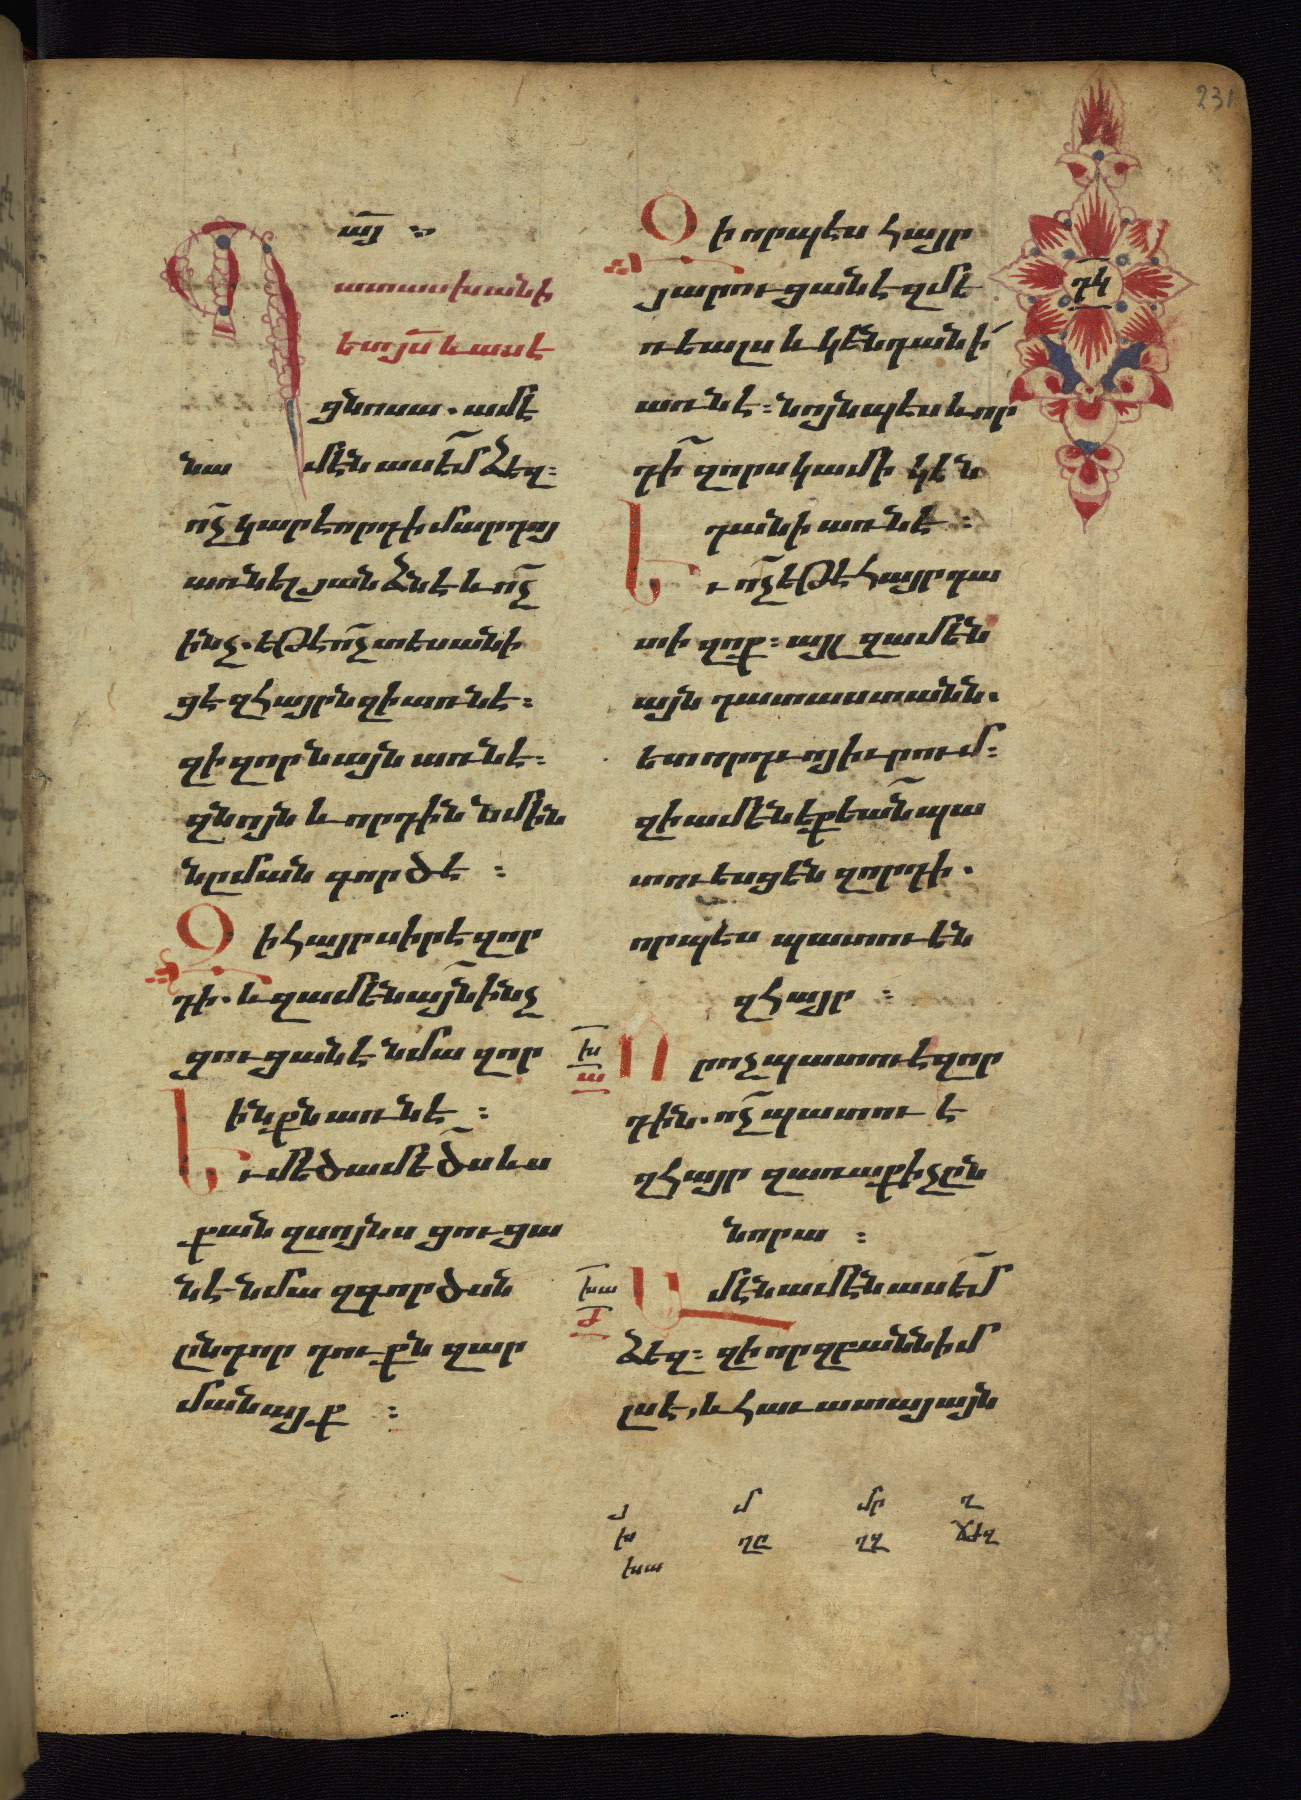 231
ա՟յ ։
Պ
ատասխանի
ետ յ՟ս և ասէ
ցնոսա. ամէ
նա մէն ասե՟մ ձեզ։
ո՟չ կարէ որդի մարդոյ
առնել յանձնէ և ո՟չ
ինչ. եթէ ո՟չ տեսանի
ցէ զհայրն զի առնէ։
զի զոր նայն առնէ։
զնոյն և որդին նմին
նըման գործէ ։
Զի հայր սիրէ զոր
դի. և զամենայ՟ն ինչ
ցուցանէ նմա զոր
ինքն առնէ ։
Եւ մեծամե՟ծս ևս
քան զսոյնս ցուցա
նէ նմա զգործսն
ընդոր դուքն զար
մանայք ։
Զի որպէս հայր
յարուցանէ զմե
ռեալս և կէնդանի՟
առնէ։ նոյնպէս և որ
դի՟ զորս կամի կէն
դանի առնէ ։
Եւ ո՟չ եթէ հայր դա
տի զոք։ այլ զամէն
այն դատաստանն.
ետ որդւոյ իւրում։
զի ամէնեքեա՟ն պա
տուեսցեն զորդի.
որպէս պատուեն
զհայր ։
խ
ա
Որ ոչ պատուէ զոր
դին. ո՟չ պատուէ
զհայր զառաքիչըն
նորա ։
խա
ժ
Ամէն ամէն ասե՟մ
ձեզ։ զի որ զբան նիմ
լսէ, և հաւատայ այն
դկ
յ մ մր ղ
խ ղը ղզ ճժզ
խա